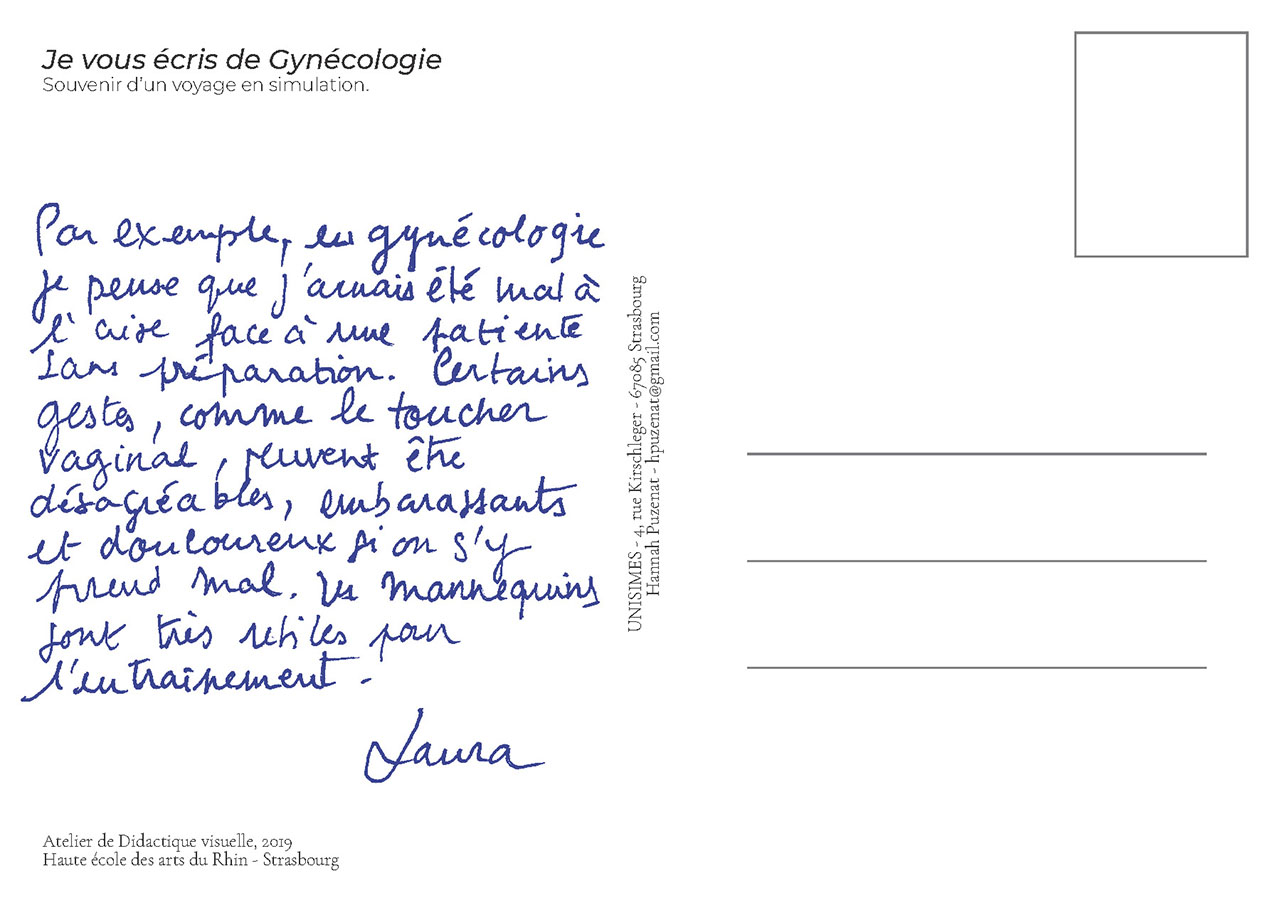 Je vous écris de Gynécologie
Souvenir d'un voyage en simulation.
Par exemple, en gynécologie
je pense que j'aurais été mal à
l'aise face à une patiente
sans préparation. Certains
gestes, comme le toucher
vaginal, peuvent être
désagréables, embarassants
et douloureux si on s'y
prend mal. Les mannequins
sont très utiles pour
l'entraînement.
Laura
UNISIMES - 4, rue Kirschleger - 67085 Strasbourg
Hannah Puzenat - hpuzenat@gmail.com
Atelier de Didactique visuelle, 2019
Haute école des arts du Rhin - Strasbourg